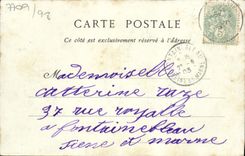 7709/92
CARTE POSTALE
Ce côté est exclusivement réservé à l'adresse
Mademoiselle
Catterine Taze
37 rue royalle
a fontainebleau
seine et marne